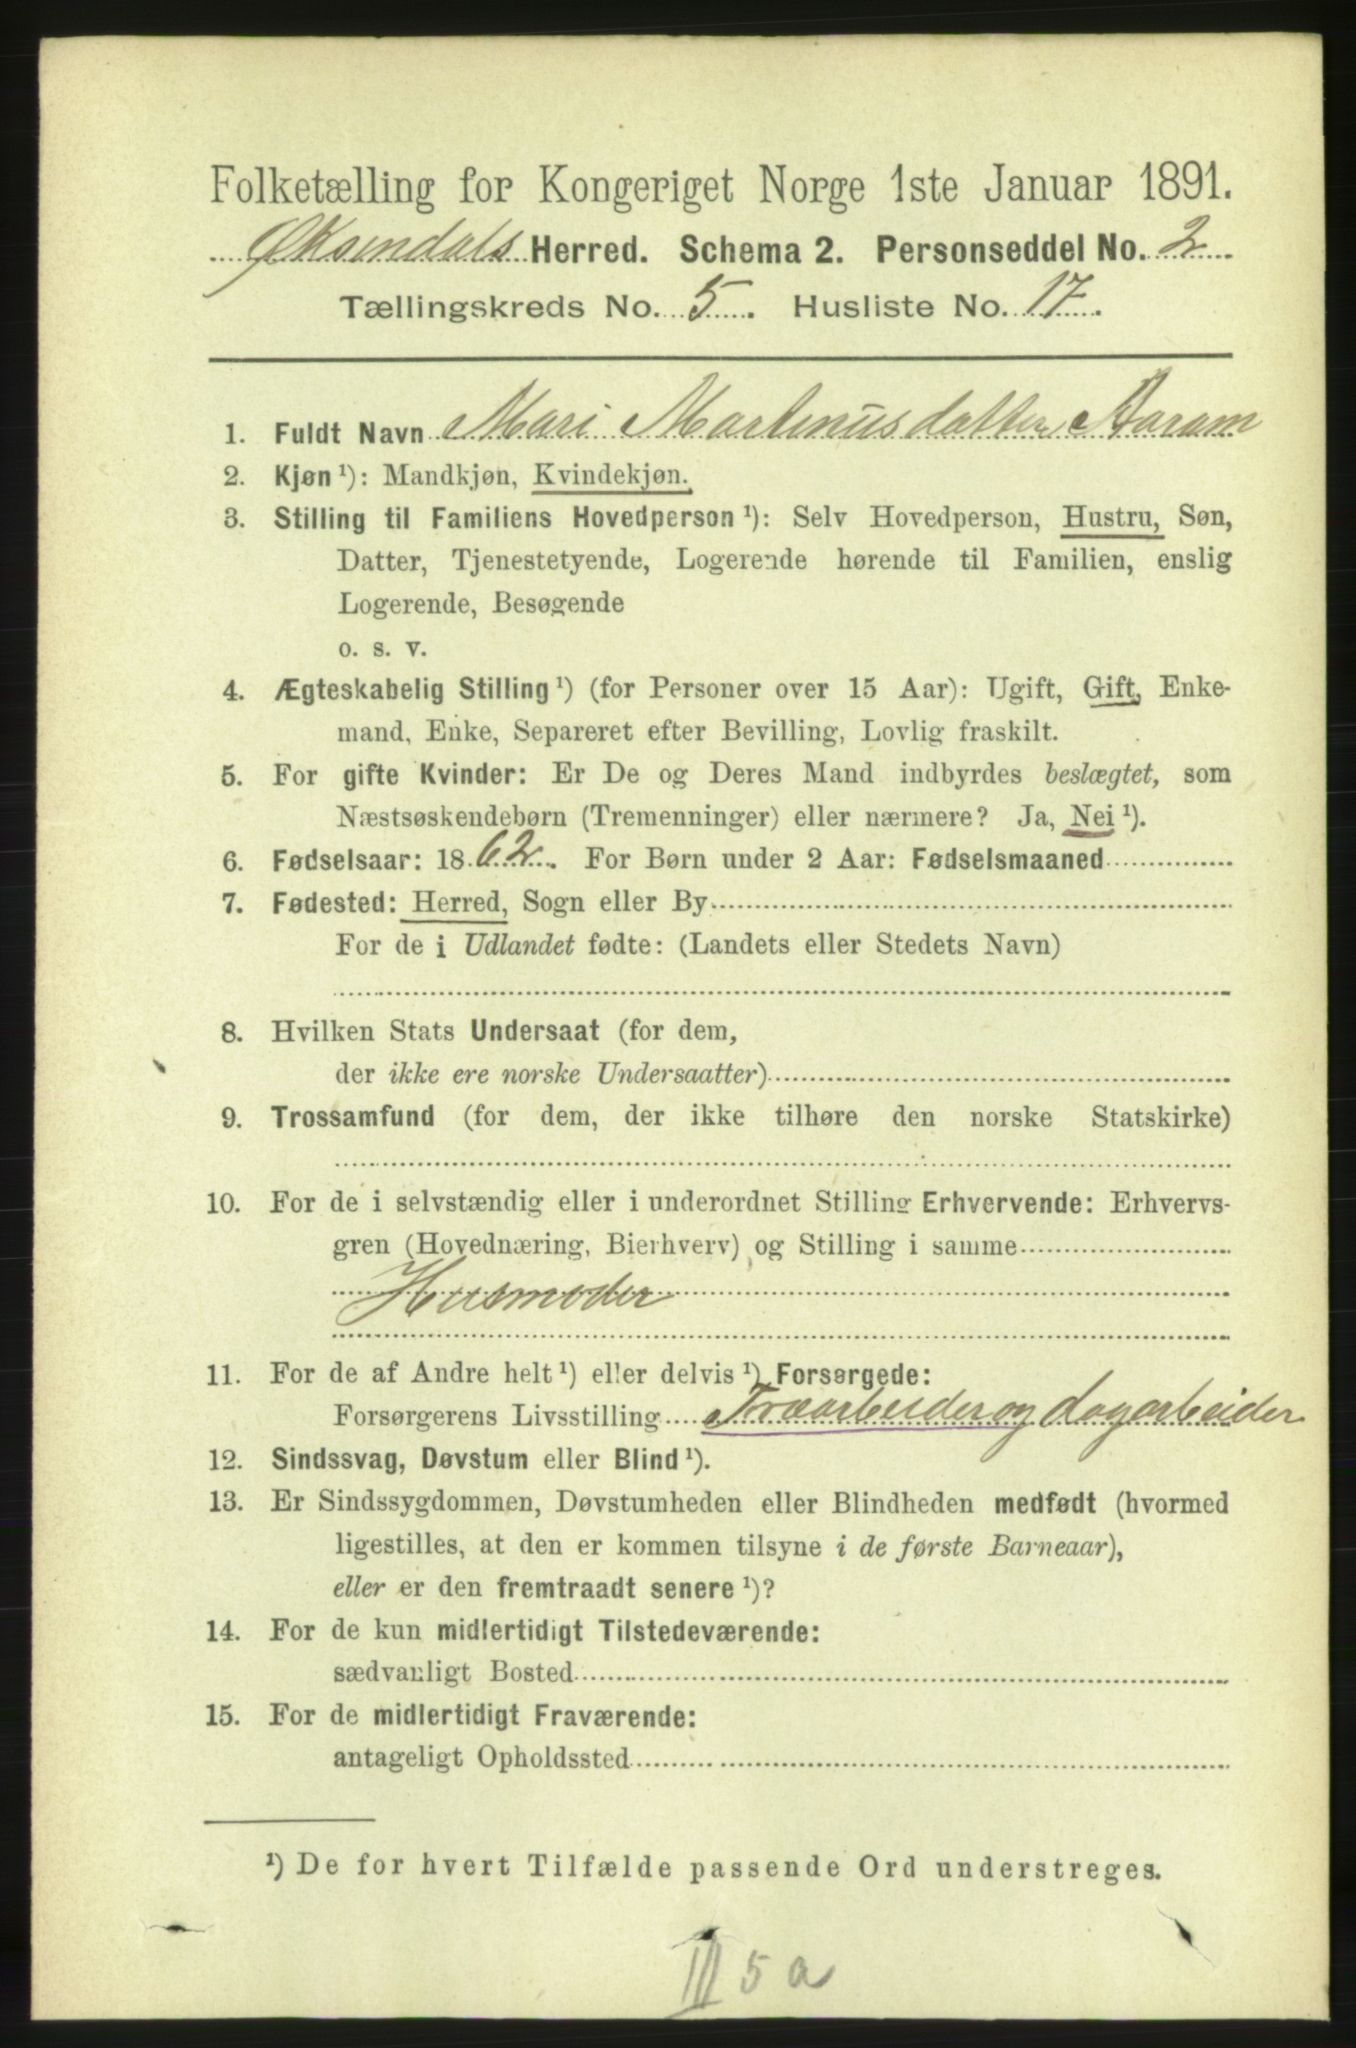 Folketælling for Kongeriget Norge 1ste Januar 1891.
Øksendals Herred. Schema 2. Personseddel No. 2
Tællingskreds No. 5. Husliste No. 17.
1. Fuldt Navn Mari Martinusdatter Aaram
2. Kjøn¹): Mandkjøn, Kvindekjøn.
3. Stilling til Familiens Hovedperson¹): Selv Hovedperson, Hustru, Søn,
Datter, Tjenestetyende, Logerende hørende til Familien, enslig
Logerende, Besøgende
o. s. v.
4. Ægteskabelig Stilling¹) (for Personer over 15 Aar): Ugift, Gift, Enke-
mand, Enke, Separeret efter Bevilling, Lovlig fraskilt.
5. For gifte Kvinder: Er De og Deres Mand indbyrdes beslægtet, som
Næstsøskendebørn (Tremenninger) eller nærmere? Ja, Nei¹).
6. Fødselsaar: 1862. For Børn under 2 Aar: Fødselsmaaned
7. Fødested: Herred, Sogn eller By
For de i Udlandet fødte: (Landets eller Stedets Navn)
8. Hvilken Stats Undersaat (for dem,
der ikke ere norske Undersaatter)
9. Trossamfund (for dem, der ikke tilhøre den norske Statskirke)
10. For de i selvstændig eller i underordnet Stilling Erhvervende: Erhvervs-
gren (Hovednæring, Bierhverv) og Stilling i samme
Husmoder
11. For de af Andre helt¹) eller delvis¹) Forsørgede:
Forsørgerens Livsstilling Træarbeider og dagarbeider
12. Sindssvag, Døvstum eller Blind¹).
13. Er Sindssygdommen, Døvstumheden eller Blindheden medfødt (hvormed
ligestilles, at den er kommen tilsyne i de første Barneaar),
eller er den fremtraadt senere¹)?
14. For de kun midlertidigt Tilstedeværende:
sædvanligt Bosted
15. For de midlertidigt Fraværende:
antageligt Opholdssted
¹) De for hvert Tilfælde passende Ord understreges.
III 5 a